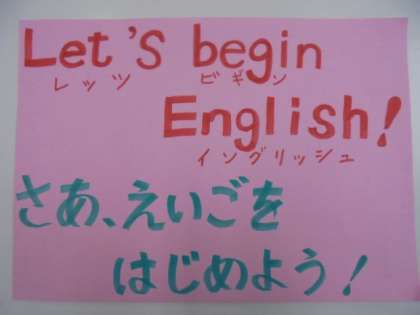 Let's begin
レッツ ビギン
English!
イングリッシュ
さあ、えいごを
はじめよう!